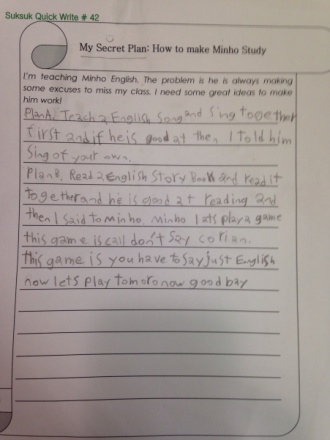 Suksuk Quick Write # 42
My Secret Plan: How to make Minho Study
I'm teaching Minho English. The problem is he is always making
some excuses to miss my class. I need some great ideas to make
him work!
PlanA. Teach a English Song and Sing together
first and if he is good at then I told him
Sing of your own.
PlanB. Read a English Story Book and read it
together and he is good at reading and
then I said to minho minho lats play a game
this game is call don't Say corian.
this game is you have to Say just English
now lets play tomoro now good bay